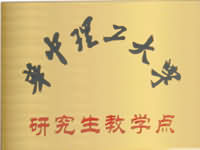 華中理工大學
研究生教学点